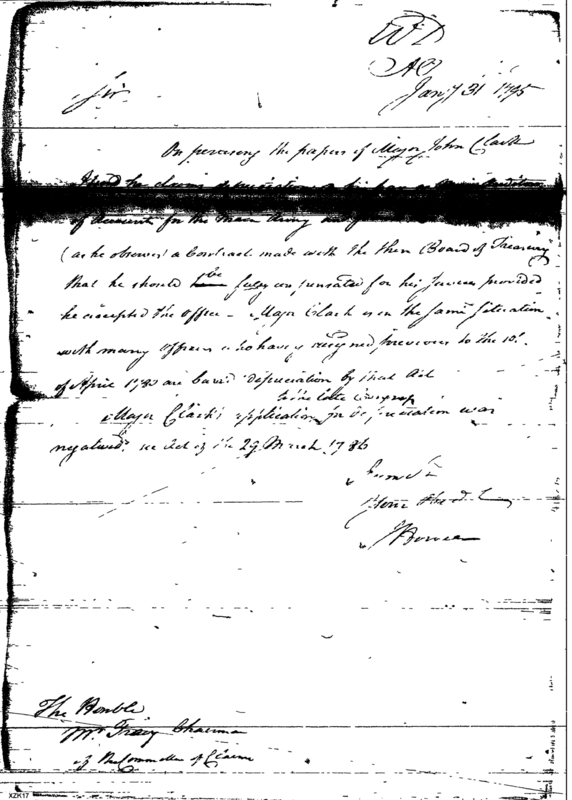 WD
AO
Jany 31 1795
Sir
On perusing the papers of Major John Clark
I find he claims depreciation
of Accounts for the main Army
(as he observes) a Contract made with the then Board of Treasury
that he should be fully compensated for his services provided
he accepted the Office - Major Clark is in the same situation
with many Officers who have resigned previous to the 10t.
of April 1780 are bared depreciation by that Act
to the late Congress
Major Clark's application for depreciation was
negatived. see Act of the 29 March 1786
I am Sir
Your Obed
J Howell
The Honble
Mr Tracy Chairman
of the Committee of Claims
XZK17